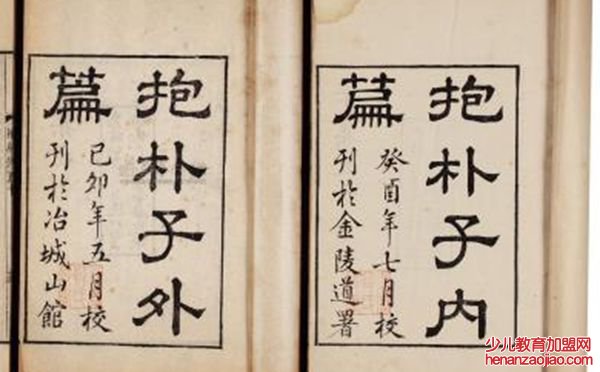 抱朴子内
篇
癸酉年七月校
刊於金陵道署
抱朴子外
篇
己卯年五月校
刊於冶城山館
少儿教育加盟网
henanzaojiao.com